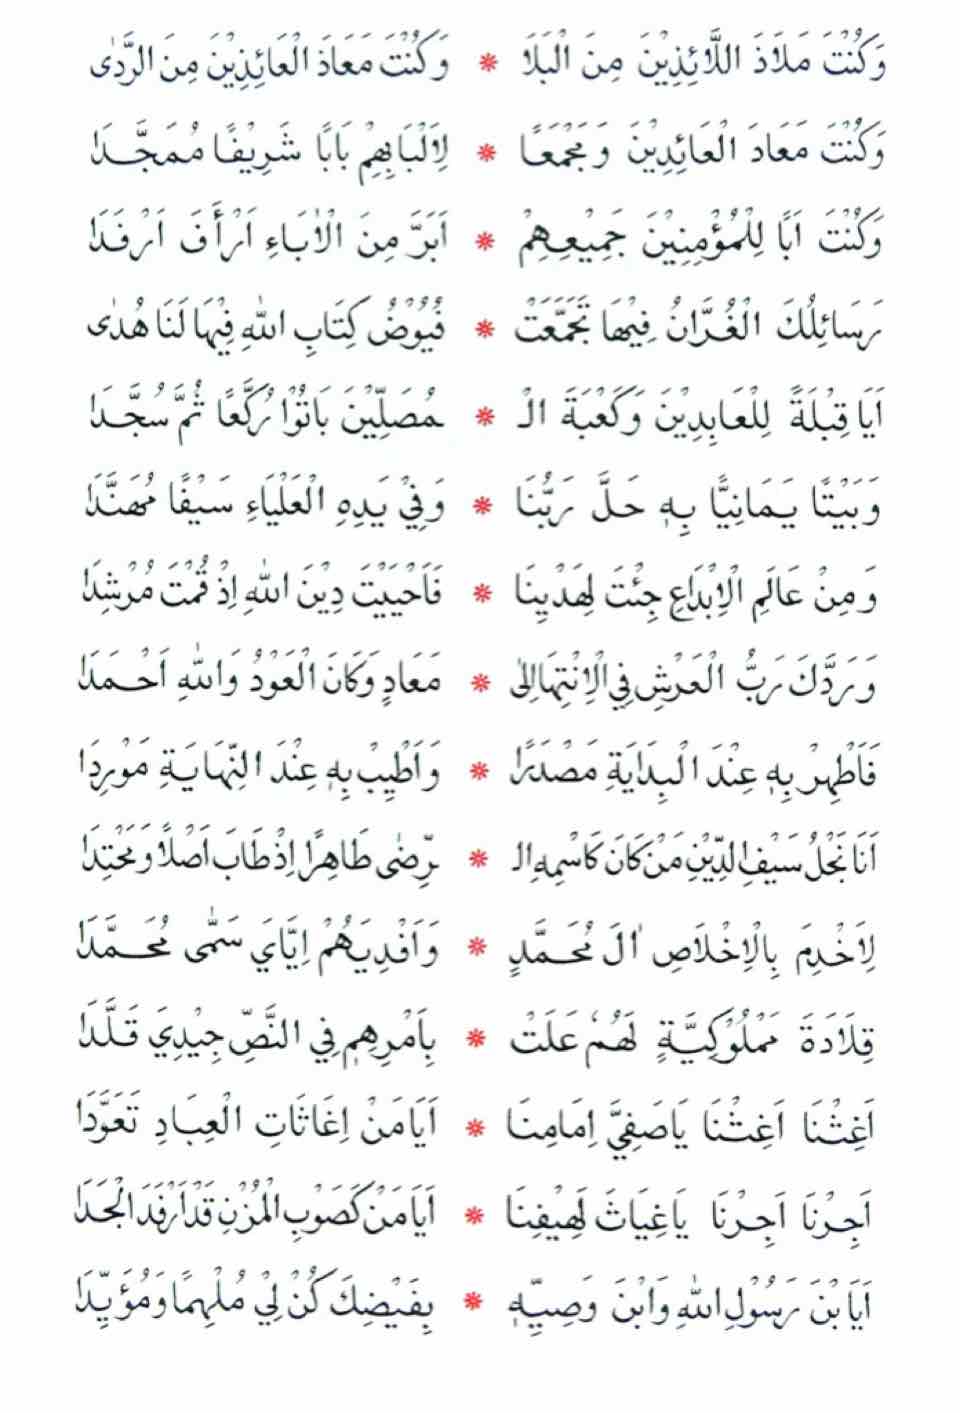 وَكُنْتَ مَلَاذَ اللَّائِذِيْنَ مِنَ الْبَلَا * وَكُنْتَ مَعَاذَ الْعَائِذِيْنَ مِنَ الرَّدٰى
وَكُنْتَ مَعَادَ الْعَائِدِيْنَ وَمَجْمَعًا * لِاَلْبَابِهِمْ بَابًا شَرِيْفًا مُمَجَّدَا
وَكُنْتَ اَبًا لِلْمُؤْمِنِيْنَ جَمِيْعِهِمْ * اَبَرَّ مِنَ الْاٰبَاءِ اَرْأَفَ اَرْفَدَا
رَسَائِلُكَ الْغُرَّانُ فِيْهَا تَجَمَّعَتْ * فُيُوْضُ كِتَابِ اللهِ فِيْهَا لَنَا هُدٰى
اَيَا قِبْلَةً لِلْعَابِدِيْنَ وَكَعْبَةَ الْـ * ـمُصَلِّيْنَ بَاتُوْا رُكَّعًا ثُمَّ سُجَّدَا
وَبَيْتًا يَمَانِيًّا بِهٖ حَلَّ رَبُّنَا * وَفِيْ يَدِهِ الْعَلْيَاءِ سَيْفًا مُهَنَّدَا
وَمِنْ عَالَمِ الْاِبْدَاعِ جِئْتَ لِهَدْيِنَا * فَاَحْيَيْتَ دِيْنَ اللهِ اِذْ قُمْتَ مُرْشِدَا
وَرَدَّكَ رَبُّ الْعَرْشِ فِي الْاِنْتِهَا اِلٰى * مَعَادٍ وَكَانَ الْعَوْدُ وَاللهِ اَحْمَدَا
فَاَطْهِرْ بِهٖ عِنْدَ الْبِدَايَةِ مَصْدَرًا * وَاَطْيِبْ بِهٖ عِنْدَ النِّهَايَةِ مَوْرِدَا
اَنَا نَجْلُ سَيْفِ الدِّيْنِ مَنْ كَانَ كَاسْمِهِ الـ * ـرِّضٰى طَاهِرًا اِذْ طَابَ اَصْلًا وَمَحْتِدَا
لِاَخْدِمَ بِالْاِخْلَاصِ اٰلَ مُحَمَّدٍ * وَاَفْدِيَهُمْ اِيَّايَ سَمّٰى مُحَمَّدَا
قِلَادَةَ مَمْلُوْكِيَّةٍ لَهُمُ عَلَتْ * بِاَمْرِهِمِ فِي النَّصِّ جِيْدِيَ قَلَّدَا
اَغِثْنَا اَغِثْنَا يَاصَفِيَّ اِمَامِنَا * اَيَا مَنْ اِغَاثَاتِ الْعِبَادِ تَعَوَّدَا
اَجِرْنَا اَجِرْنَا يَاغِيَاثَ لَهِيْفِنَا * اَيَا مَنْ كَصَوْبِ الْمُزْنِ قَدْ اَرْفَدَ الْجَدَا
اَيَا بْنَ رَسُوْلِ اللهِ وَابْنَ وَصِيِّهٖ * بِفَيْضِكَ كُنْ لِيْ مُلْهِمًا وَمُؤَيِّدَا